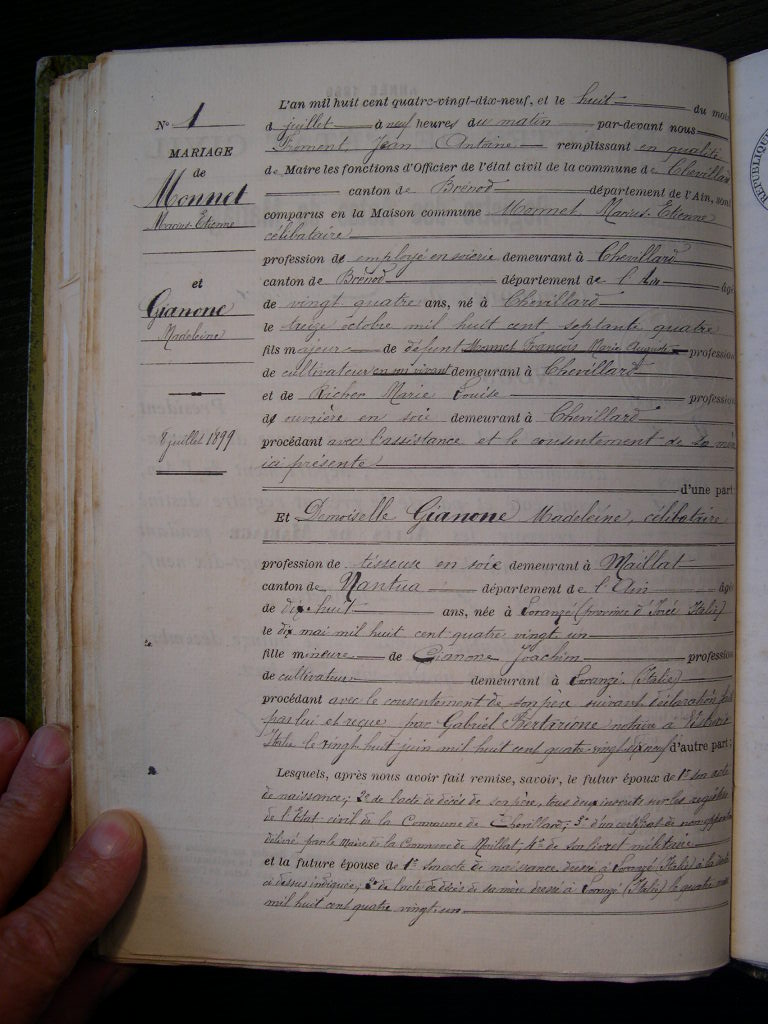 N° 1
MARIAGE
de
Monnet
Marius-Etienne
et
Gianone
Madeleine
8 juillet 1899
L'an mil huit cent quatre-vingt-dix-neuf, et le huit du mois
d juillet à neuf heures du matin par-devant nous
Froment, Jean Antoine remplissant en qualité
de Maire les fonctions d'Officier de l'état civil de la commune de Chevillard
canton de Brénod département de l'Ain, sont
comparus en la Maison commune Monnet, Marius-Etienne
célibataire
profession de employé en soierie demeurant à Chevillard
canton de Brénod département de l'Ain âgé
de vingt quatre ans, né à Chevillard
le treize octobre mil huit cent septante quatre
fils majeur de défunt Monnet François Marie Auguste profession
de cultivateur en son vivant demeurant à Chevillard
et de Richer Marie Louise profession
de ouvrière en soie demeurant à Chevillard
procédant avec l'assistance et le consentement de sa mère
ici présente
d'une part
Et Demoiselle Gianone Madeleine, célibataire
profession de tisseuse en soie demeurant à Maillat
canton de Nantua département de l'Ain âgé
de dix-huit ans, née à Loranzé (province d'Ivrée Italie)
le dix mai mil huit cent quatre vingt un
fille mineure de Gianone Joachim profession
de cultivateur demeurant à Loranzé (Italie)
procédant avec le consentement de son père suivant déclaration faite
par lui et reçue par Gabriel notaire à
Italie le vingt huit juin mil huit cent quatre-vingt dix neuf d'autre part;
Lesquels, après nous avoir fait remise, savoir, le futur époux de 1° son acte
de naissance; 2° de l'acte de décès de son père, tous deux inscrits sur les registres
de l'Etat civil de la Commune de Chevillard; 3° d'un certificat de non opposition
délivré par le Maire de la Commune de Maillat; 4° de son livret militaire
et la future épouse de 1° son acte de naissance dressé à Loranzé (Italie) à la date
ci dessus indiquée; 2° de l'acte de décès de sa mère dressé à Loranzé (Italie) le quatre
mil huit cent quatre vingt-un